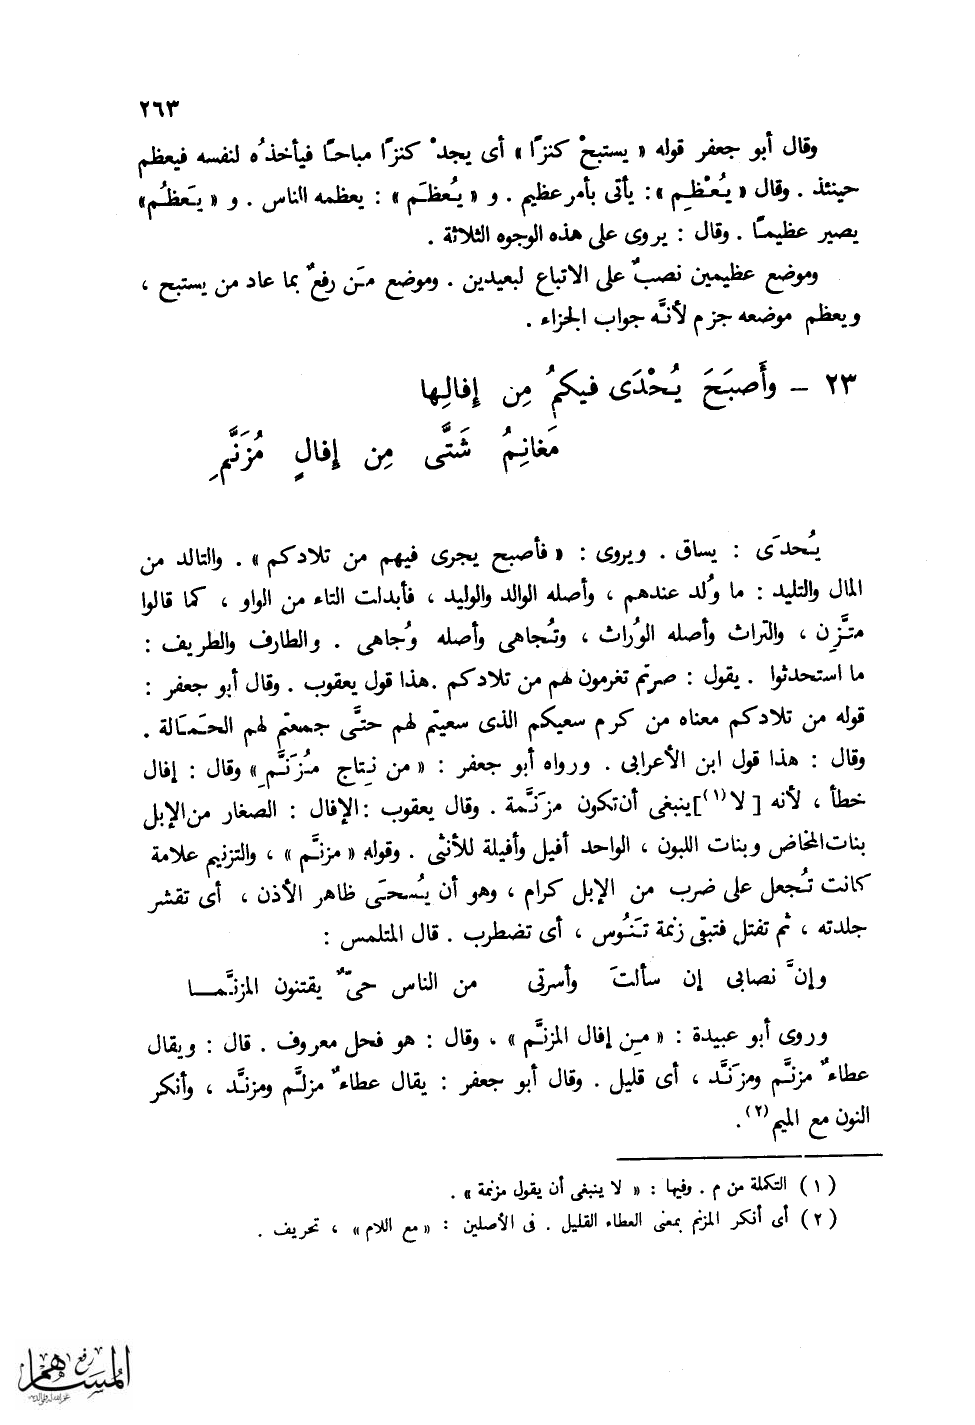 ٢٦٣
وقال أبو جعفر قوله « يستبحْ كنزًا » أى يجدْ كنزًا مباحًا فيأخذُه لنفسه فيعظم
حينئذ . وقال « يُعْظِم »: يأتى بأمر عظيم . و « يُعظَم » : يعظمه االناس . و « يَعظُم»
يصير عظيمًا . وقال : يروى على هذه الوجوه الثلاثة .
وموضع عظيمين نصبٌ على الاتباع لبعيدين . وموضع مَن رفعٌ بما عاد من يستبح ،
ويعظم موضعه جزم لأنَّه جواب الجزاء .
٢٣ – وأَصبَحَ يُحْدَى فيكمُ مِن إفالِها
مَغانِمُ شَتَّى مِن إفالٍ مُزَنَّمِ
يُحدَى : يساق . ويروى : « فأصبح يجرى فيهم من تلادكم » . والتالد من
المال والتليد : ما وُلد عندهم ، وأصله الوالد والوليد ، فأبدلت التاء من الواو ، كما قالوا
متَّزِن ، والتراث وأصله الوُراث ، وتُجاهى وأصله وُجاهى . والطارف والطريف :
ما استحدثوا . يقول : صرتم تغرمون لهم من تلادكم . هذا قول يعقوب . وقال أبو جعفر :
قوله من تلادكم معناه من كرم سعيكم الذى سعيتم لهم حتَّى جمعتم لهم الحَمَالة .
وقال : هذا قول ابن الأعرابى . ورواه أبو جعفر : « من نِتاج مُزَنَّمِ » وقال : إفال
خطأ ، لأنه [ لا(١)]ينبغى أن تكون مزَنَّمة . وقال يعقوب : الإفال : الصغار من الإبل
بنات المخاض وبنات اللبون ، الواحد أفيل وأفيلة للأنثى . وقوله « مزنَّم » ، والتزنيم علامة
كانت تُجعل على ضرب من الإبل كرام ، وهو أن يُسحَى ظاهر الأذن ، أى تقشر
جلدته ، ثم تفتل فتبقى زنمة تَنُوس ، أى تضطرب . قال المتلمس :
وإنَّ نصابى إن سألتَ وأسرتى من الناس حىٌّ يقتنون المزنَّمـــا
وروى أبو عبيدة : « مِن إفال المزنَّم » ، وقال : هو فحل معروف . قال : ويقال
عطاءٌ مزنَّم ومزَنَّد ، أى قليل . وقال أبو جعفر : يقال عطاءٌ مزلَّم ومزنَّد ، وأنكر
النون مع الميم(٢).
(١) التكملة من م . وفيها : « لا ينبغى أن يقول مزنمة » .
(٢) أى أنكر المزنم بمعنى العطاء القليل . فى الأصلين : « مع اللام » ، تحريف .
رفع
المساهم